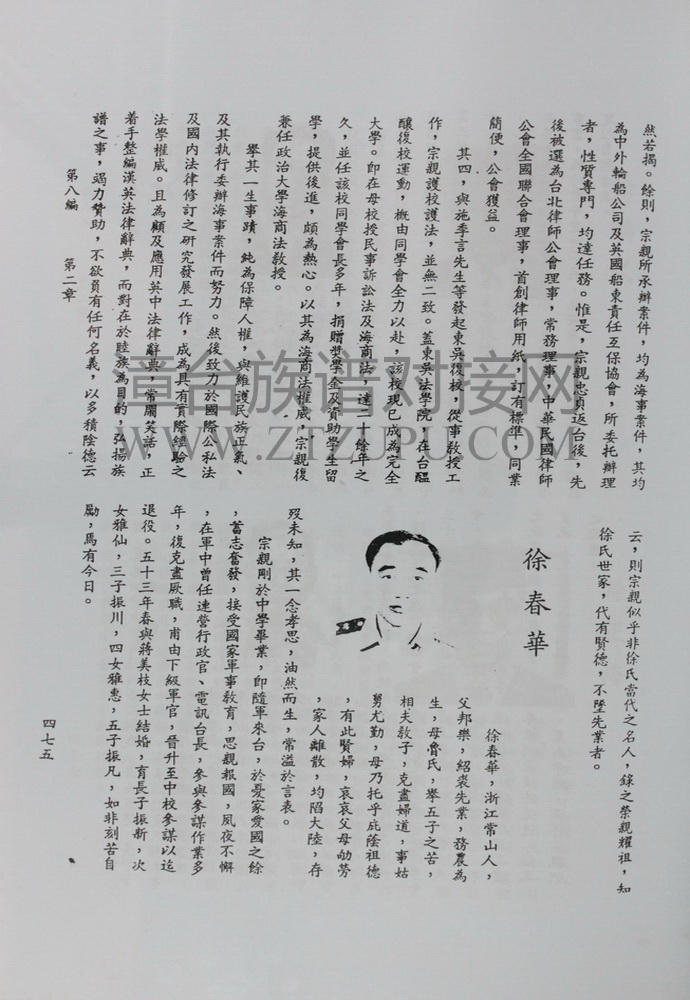 然若揭。餘則，宗親所承辦案件，均為海事案件，其均
為中外輪船公司及英國船東責任互保協會，所委托辦理
者，性質專門，均達任務。惟是，宗親忠貞返台後，先
後被選為台北律師公會理事，常務理事，中華民國律師
公會全國聯合會理事，首創律師用紙，訂有標準，同業
簡便，公會獲益。
其四，與施季言先生等發起東吳復校，從事教授工
作，宗親護校護法，並無二致。蓋東吳法學院，在台醞
釀復校運動，概由同學會全力以赴，該校現已成為完全
大學。即在母校授民事訴訟法及海商法，達二十餘年之
久，並任該校同學會長多年，捐贈獎學金及資助學生留
學，提供後進，頗為熱心。以其為海商法權威，宗親復
兼任政治大學海商法教授。
舉其一生事蹟，純為保障人權，與維護民族正氣、
及其執行委辦海事案件而努力。然後致力於國際公私法
及國內法律修訂之研究發展工作，成為具有實際經驗之
法學權威。且為顧及應用英中法律辭典，常鬧笑話，正
着手整編漢英法律辭典，而對在於睦族為目的，弘揚族
譜之事，竭力贊助，不欲負有任何名義，以多積陰德云
云，則宗親似乎非徐氏當代之名人，錄之榮親耀祖，知
徐氏世家，代有賢德，不墜先業者。
徐春華
徐春華，浙江常山人，
父邦樂，紹裘先業，務農為
生，母魯氏，舉五子之苦，
相夫教子，克盡婦道，事姑
舅尤勤，母乃托乎庇蔭祖德
，有此賢婦，哀哀父母劬勞
，家人離散，均陷大陸，存
歿未知，其一念孝思，油然而生，常溢於言表。
宗親剛於中學畢業，即隨軍來台，於憂家愛國之餘
，蓄志奮發，接受國家軍事教育，思親報國，夙夜不懈
，在軍中曾任連營行政官、電訊台長，參與參謀作業多
年，復克盡厥職，甫由下級軍官，晉升至中校參謀以迄
退役。五十三年春與蔣美枝女士結婚，育長子振新，次
女雅仙，三子振川，四女雅惠，五子振凡，如非刻苦自
勵，焉有今日。
第八編　第二章
四七五
章台族谱对接网
WWW.ZTZUPU.COM